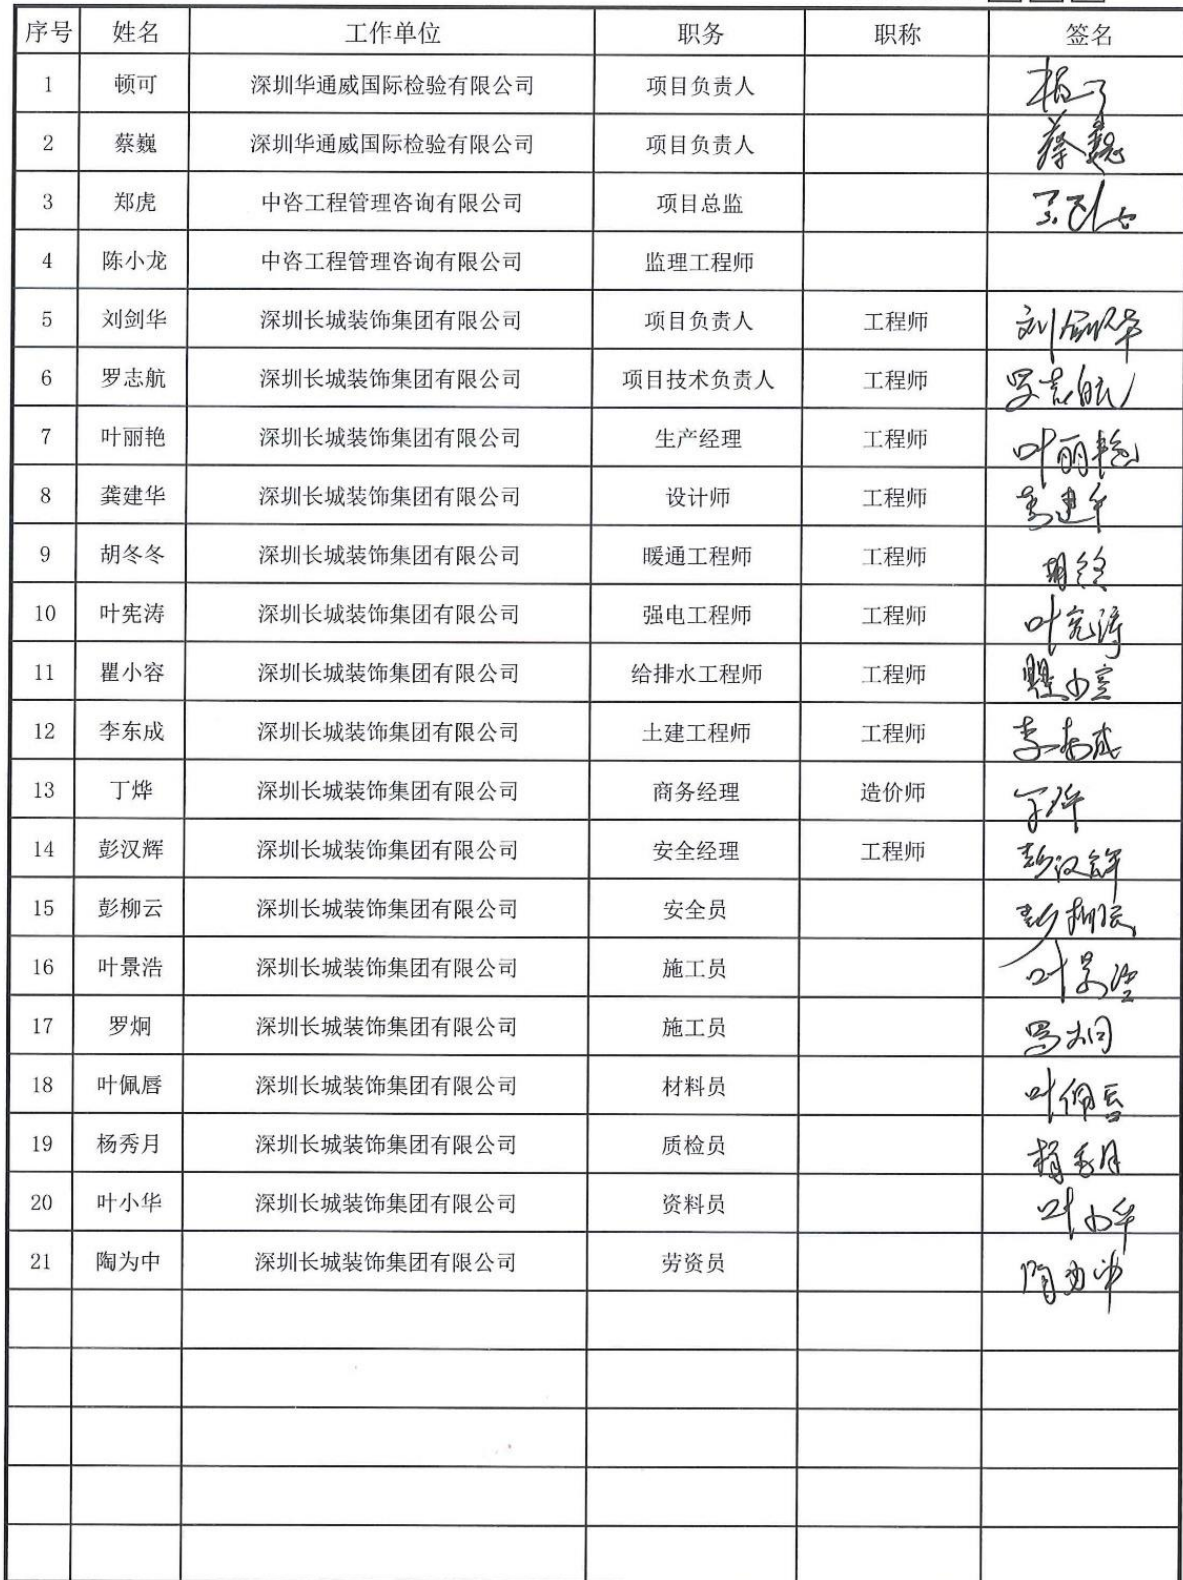 序号 姓名 工作单位 职务 职称 签名
1 顿可 深圳华通威国际检验有限公司 项目负责人
2 蔡巍 深圳华通威国际检验有限公司 项目负责人 蔡巍
3 郑虎 中咨工程管理咨询有限公司 项目总监
4 陈小龙 中咨工程管理咨询有限公司 监理工程师
5 刘剑华 深圳长城装饰集团有限公司 项目负责人 工程师 刘剑华
6 罗志航 深圳长城装饰集团有限公司 项目技术负责人 工程师 罗志航
7 叶丽艳 深圳长城装饰集团有限公司 生产经理 工程师 叶丽艳
8 龚建华 深圳长城装饰集团有限公司 设计师 工程师 龚建华
9 胡冬冬 深圳长城装饰集团有限公司 暖通工程师 工程师
10 叶宪涛 深圳长城装饰集团有限公司 强电工程师 工程师 叶宪涛
11 瞿小容 深圳长城装饰集团有限公司 给排水工程师 工程师 瞿小容
12 李东成 深圳长城装饰集团有限公司 土建工程师 工程师 李东成
13 丁烨 深圳长城装饰集团有限公司 商务经理 造价师 丁烨
14 彭汉辉 深圳长城装饰集团有限公司 安全经理 工程师 彭汉辉
15 彭柳云 深圳长城装饰集团有限公司 安全员 彭柳云
16 叶景浩 深圳长城装饰集团有限公司 施工员 叶景浩
17 罗炯 深圳长城装饰集团有限公司 施工员 罗炯
18 叶佩唇 深圳长城装饰集团有限公司 材料员 叶佩唇
19 杨秀月 深圳长城装饰集团有限公司 质检员 杨秀月
20 叶小华 深圳长城装饰集团有限公司 资料员 叶小华
21 陶为中 深圳长城装饰集团有限公司 劳资员 陶为中